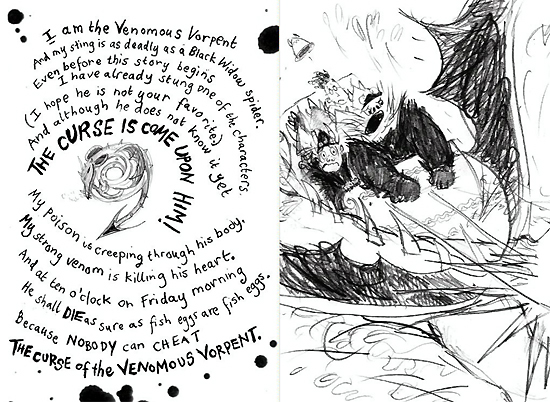 I am the Venomous Vorpent
And my sting is as deadly as a Black Widow spider.
Even before this story begins
I have already stung one of the characters.
(I hope he is not your favorite)
And although he does not know it yet
THE CURSE IS COME UPON HIM!
My poison is creeping through his body.
My strong venom is killing his heart.
And at ten o'clock on Friday morning
He shall DIE as sure as fish eggs are fish eggs.
Because NOBODY can CHEAT
THE CURSE of the VENOMOUS VORPENT.